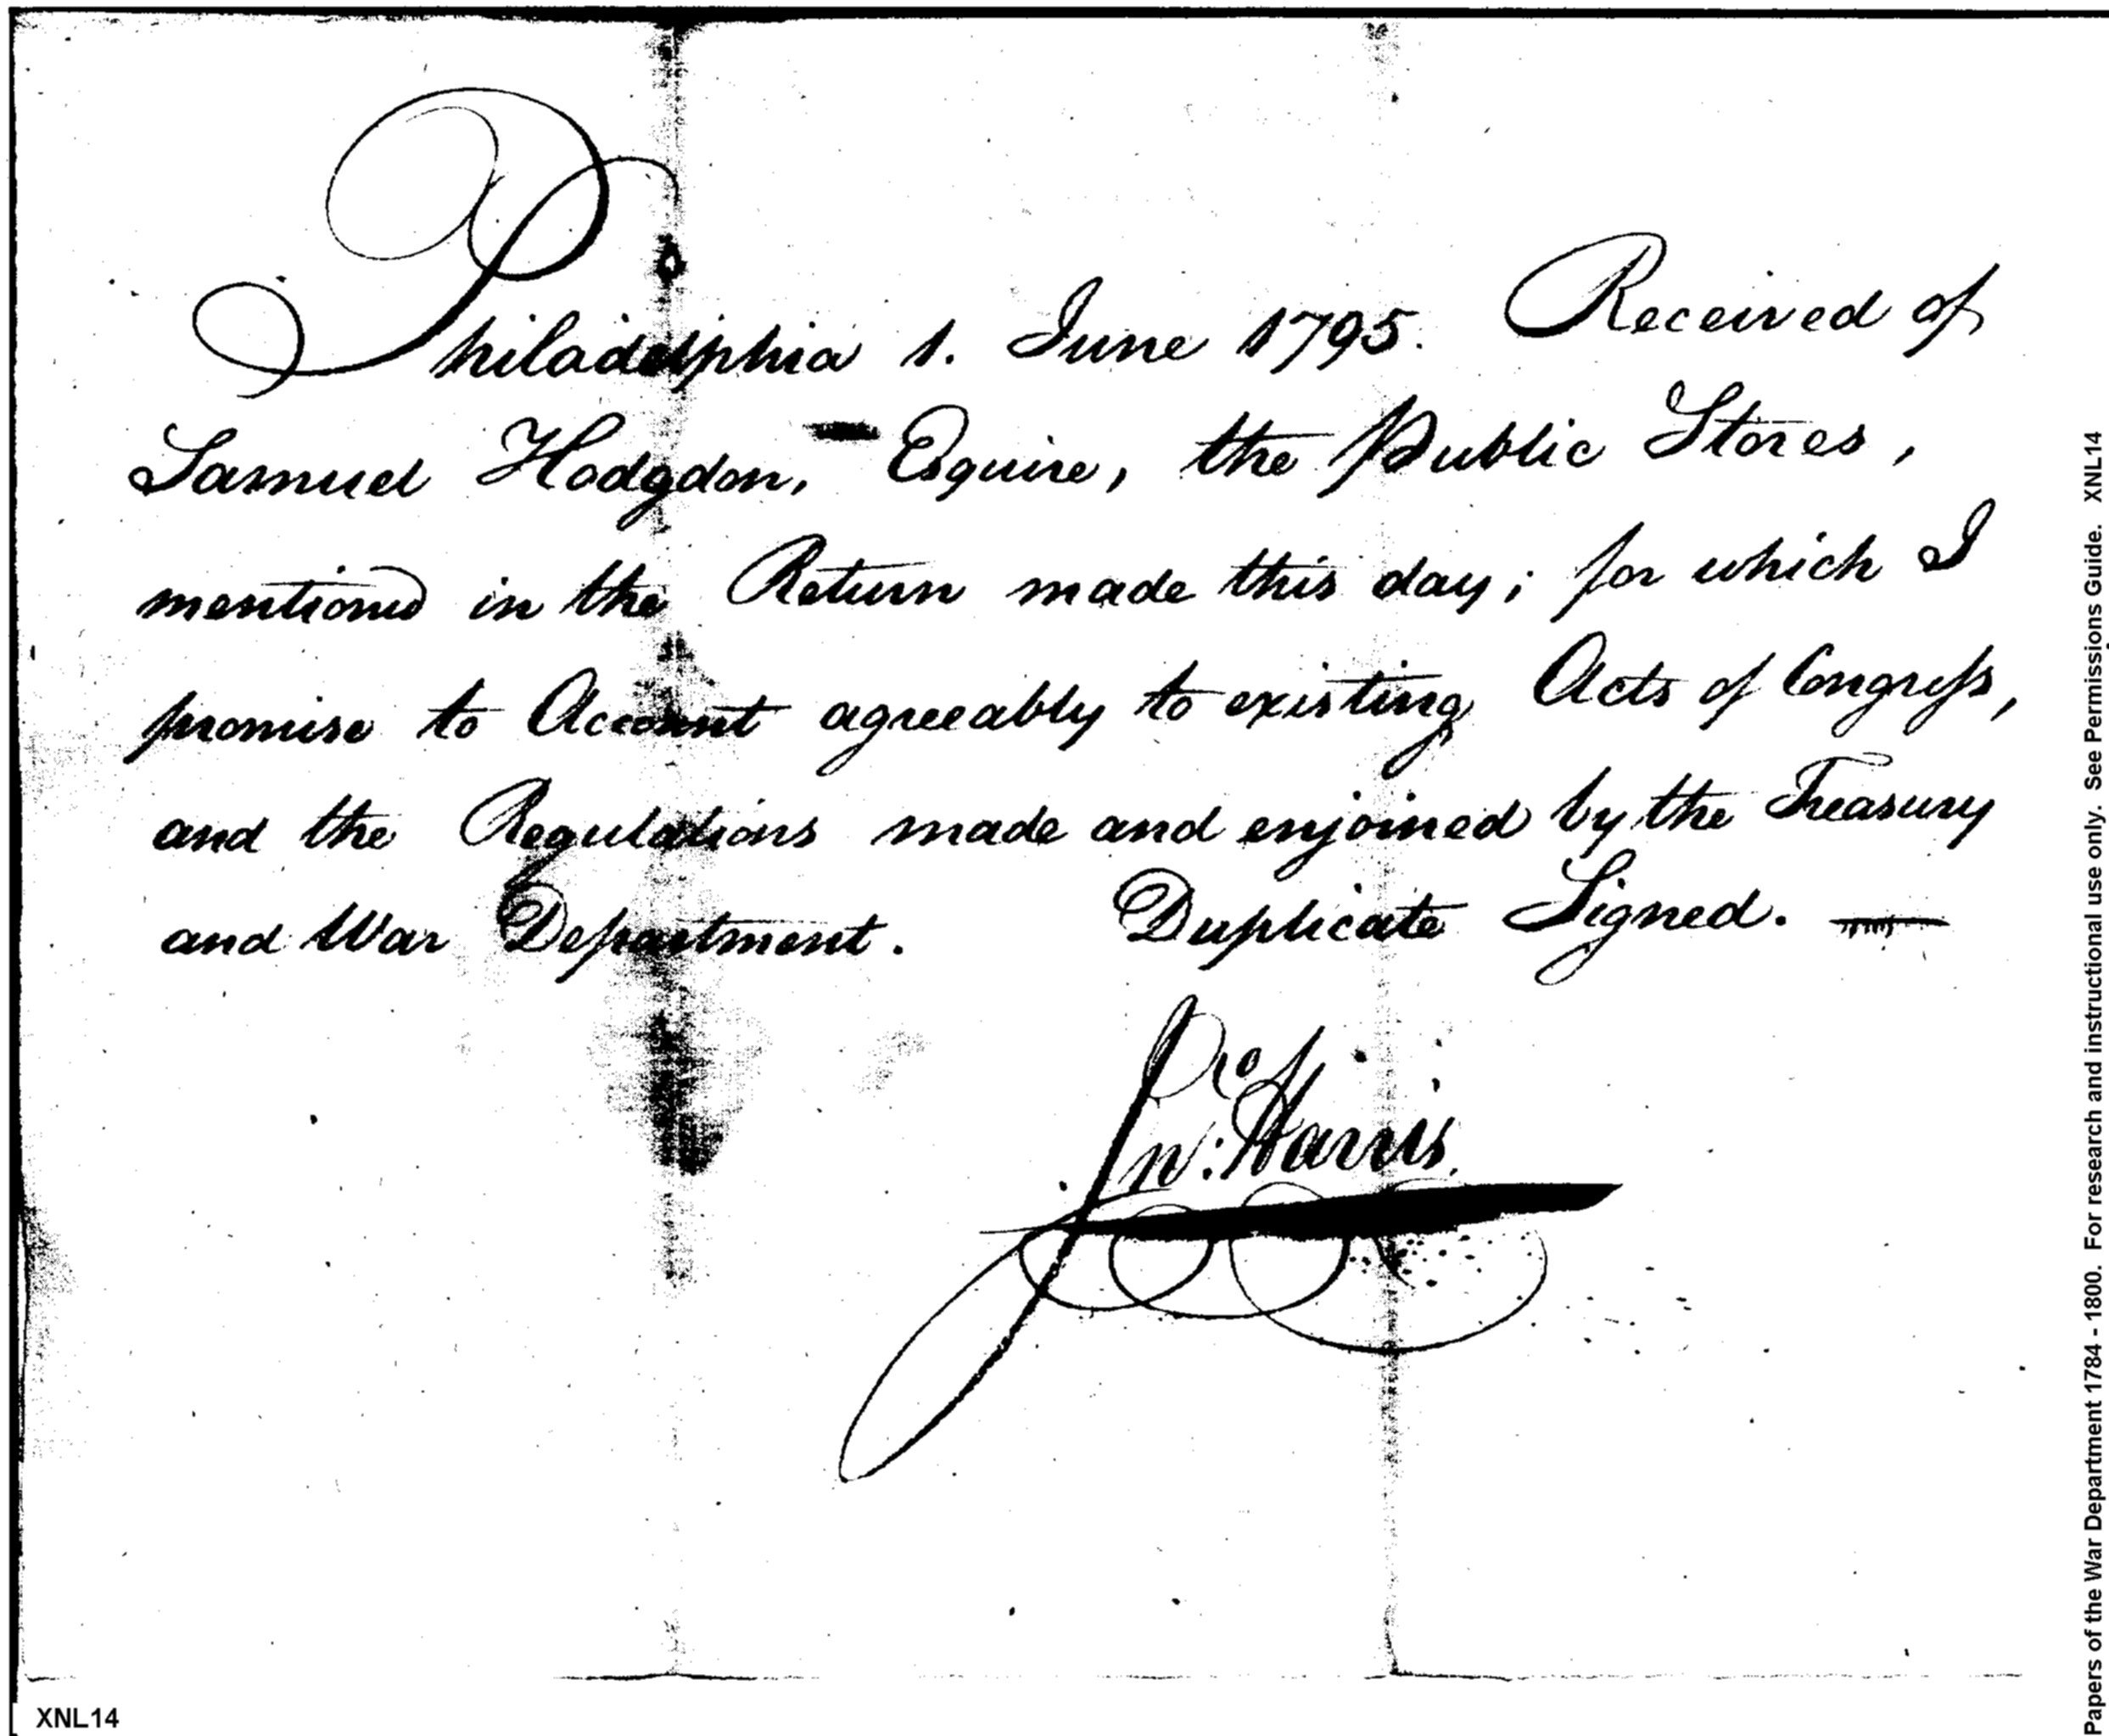 Philadelphia 1. June 1795. Received of
Samuel Hodgdon, Esquire, the Public Stores,
mentioned in the Return made this day; for which I
promise to Account agreeably to existing Acts of Congress,
and the Regulations made and enjoined by the Treasury
and War Department. Duplicate Signed.
Jno: Harris
XNL14
Papers of the War Department 1784 - 1800. For research and instructional use only. See Permissions Guide. XNL14